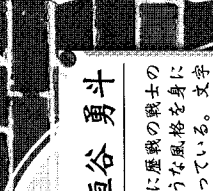 谷 勇斗
に歴戦の戦士の
うな風格を身に
っている。文字